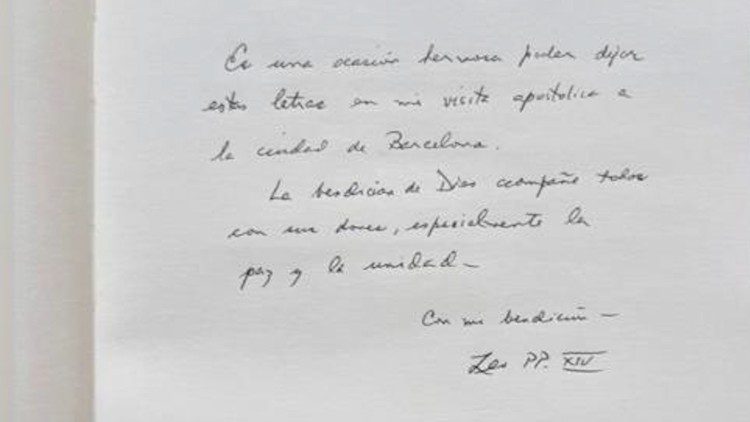 Es una ocasión hermosa poder dejar
estas letras en mi visita apostólica a
la ciudad de Barcelona.
La bendición de Dios acompañe todos
con sus dones, especialmente la
paz y la unidad –
Con mi bendición –
Leo PP. XIV